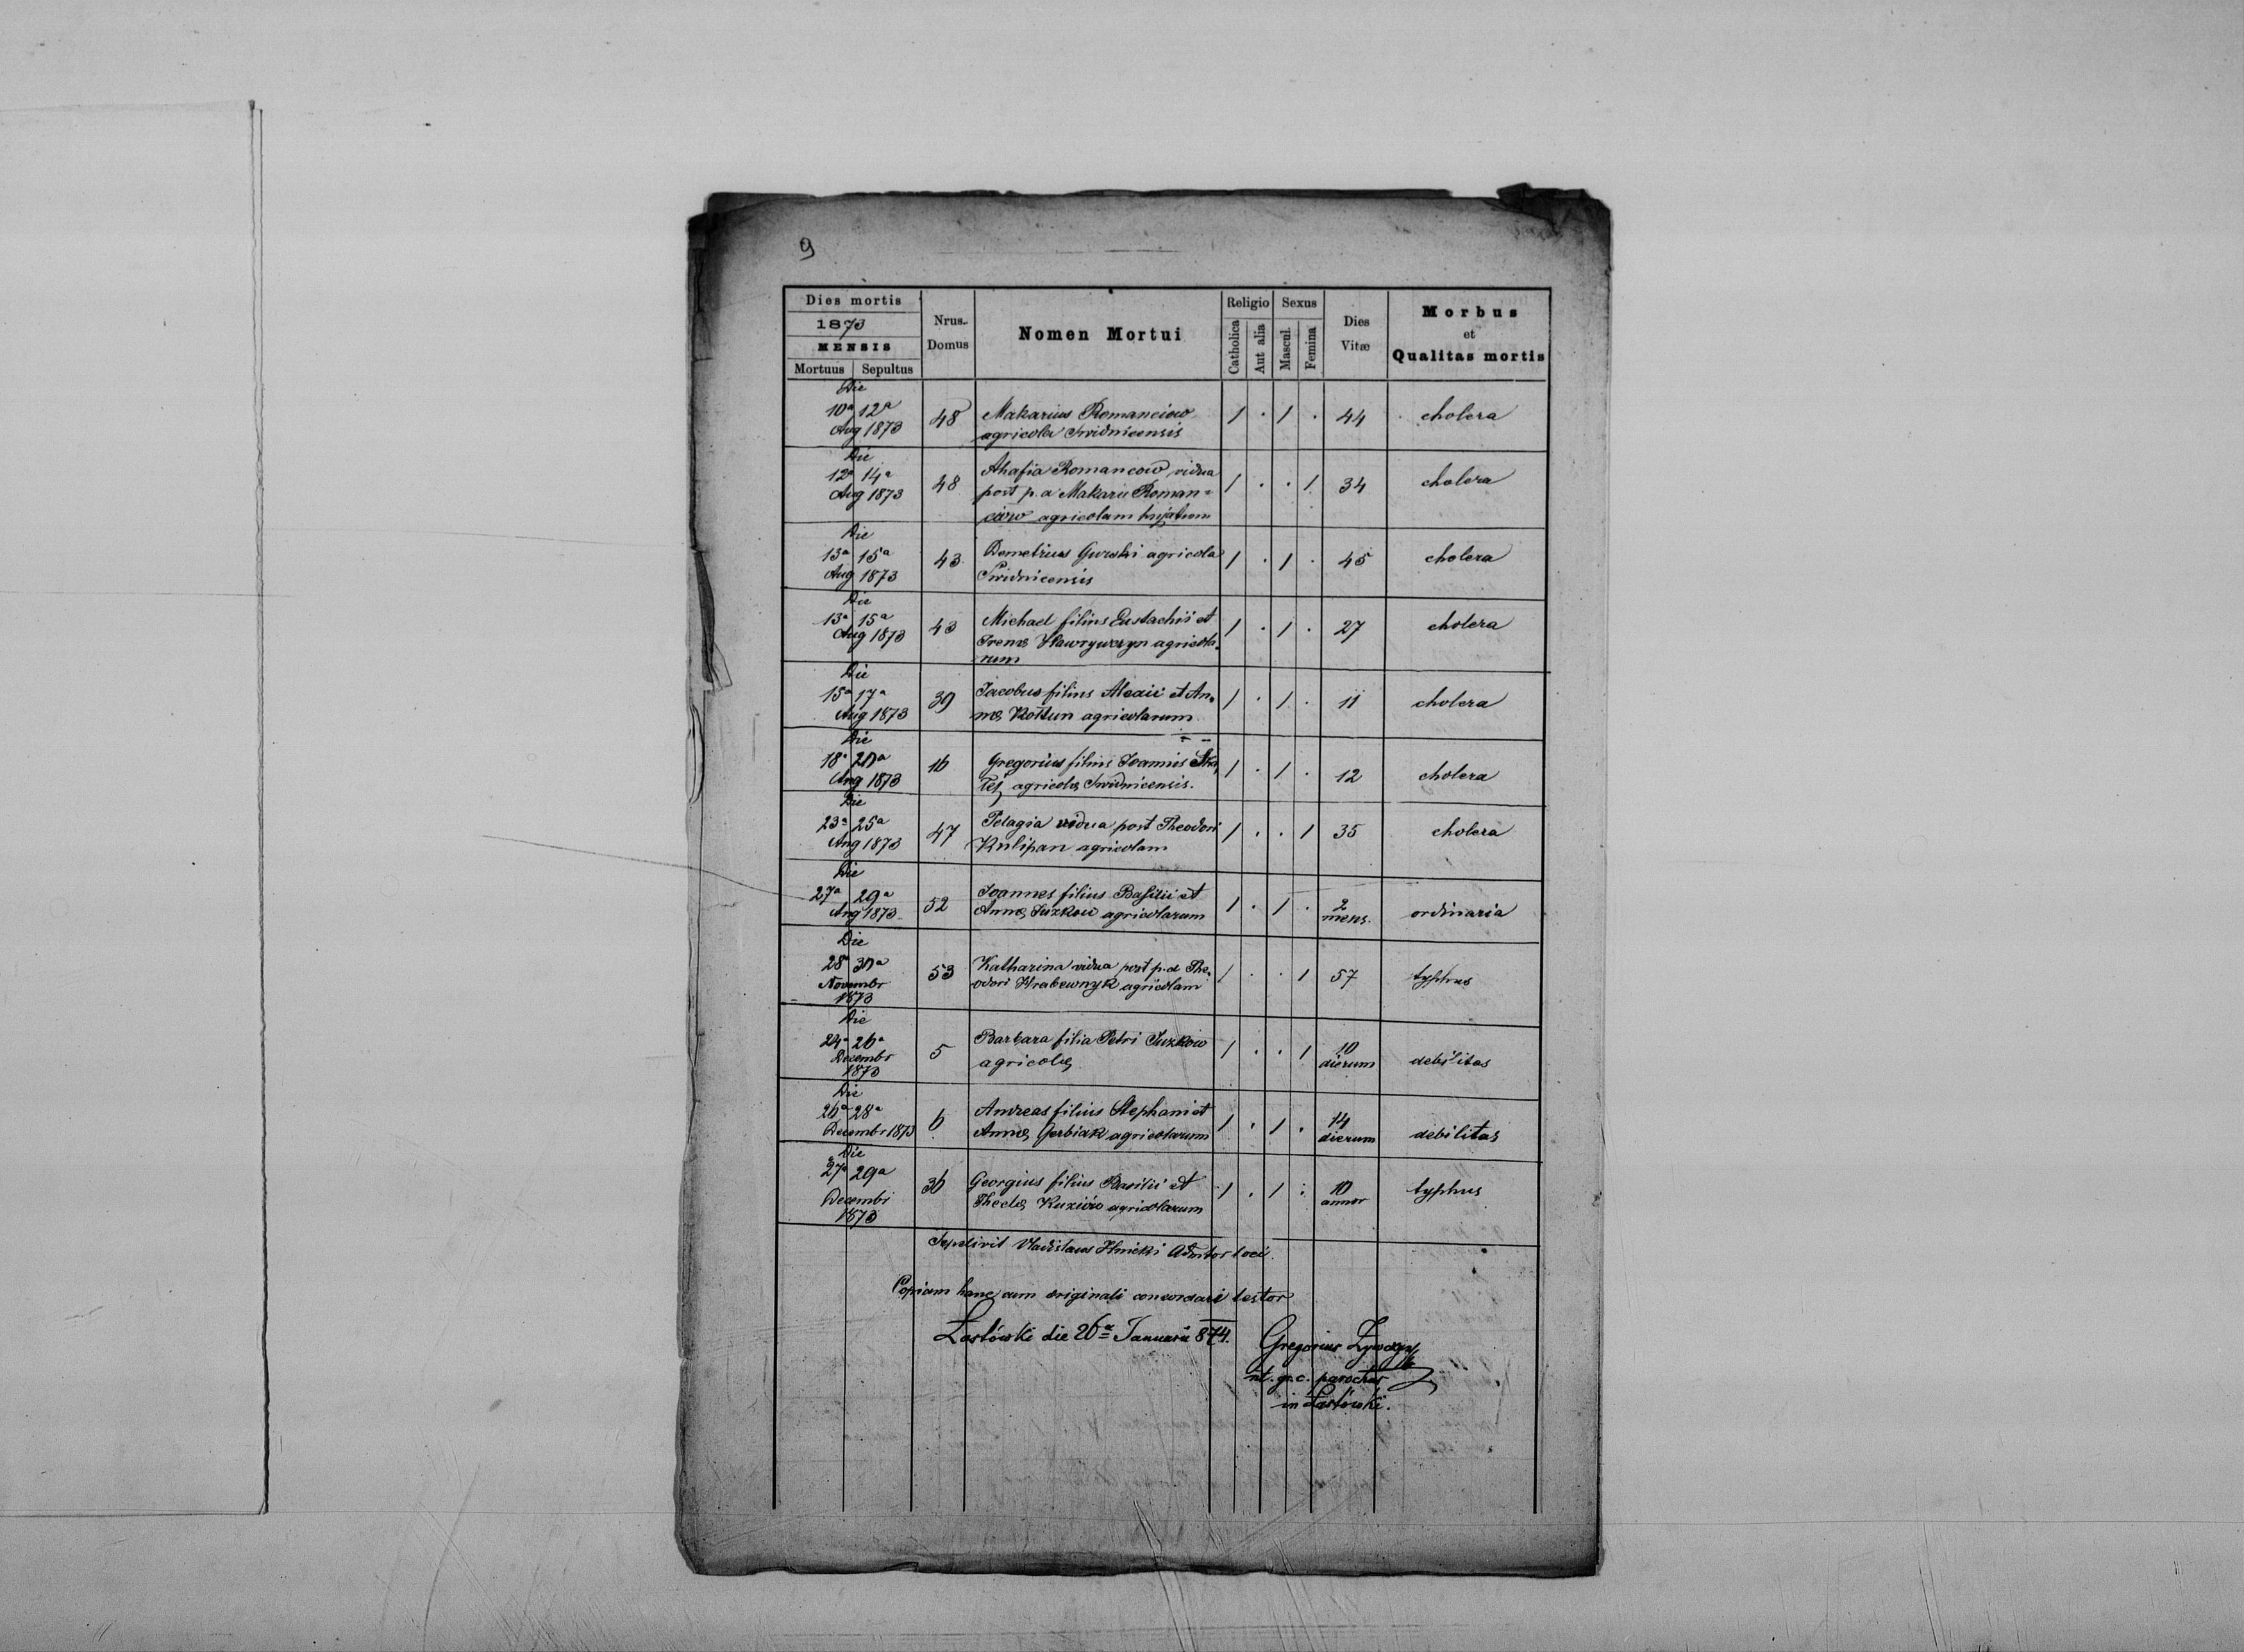 9
Dies mortis
1873
MENSIS
Mortuus Sepultus
Nrus. Domus
Nomen Mortui
Religio
Catholica Aut alia
Sexus
Mascul. Femina
Dies Vitæ
Morbus
et
Qualitas mortis
Die
10ª 12ª 48 Makarius Romanciow 1 . 1 . 44 cholera
Aug 1873 agricola Swidnicensis
Die
12ª 14ª 48 Ahafia Romancow vidua 1 . . 1 34 cholera
Aug 1873 post p. d Makarii Roman=
ciow agricolam hujatem
Die
13ª 15ª 43 Demetrius Gurski agricola 1 . 1 . 45 cholera
Aug 1873 Swidnicensis
Die
13ª 15ª 43 Michael filius Eustachii et 1 . 1 . 27 cholera
Aug 1873 Irenæ Hawrywezyn agricola=
rum
Die
15ª 17ª 39 Jacobus filius Alexii et An= 1 . 1 . 11 cholera
Aug 1873 næ Kottun agricolarum
Die
18ª 20ª 16 Gregorius filius Joannis 1 . 1 . 12 cholera
Aug 1873 agricolæ Swidnicensis.
Die
23ª 25ª 47 Pelagia vidua post Theodori 1 . . 1 35 cholera
Aug 1873 Kulipan agricolam
Die
27ª 29ª 52 Joannes filius Basilii et 1 . 1 . 2 mens. ordinaria
Aug 1873 Annæ Juzkow agricolarum
Die
28ª 30ª 53 Katharina vidua post p. d The= 1 . . 1 57 typhus
Novembr odori Hrabewnyk agricolam
1873
Die
24ª 26ª 5 Barbara filia Petri Juzkow 1 . . 1 10 dierum debilitas
Decembr agricolæ
1873
Die
26ª 28ª 6 Andreas filius Stephani et 1 . 1 . 14 dierum debilitas
Decembr 1873 Annæ Jerbiak agricolarum
Die
27ª 29ª 36 Georgius filius Basilii et 1 . 1 . 10 annor typhus
Decembr Theclæ Kuziów agricolarum
1873
Sepelivit Vladislaus Ilnicki Admtor loci.
Copiam hanc cum originali concordare testor
Łastówki die 26ª Januarii 874.
Gregorius
rit. gr. c. parochus
in Łastówki.